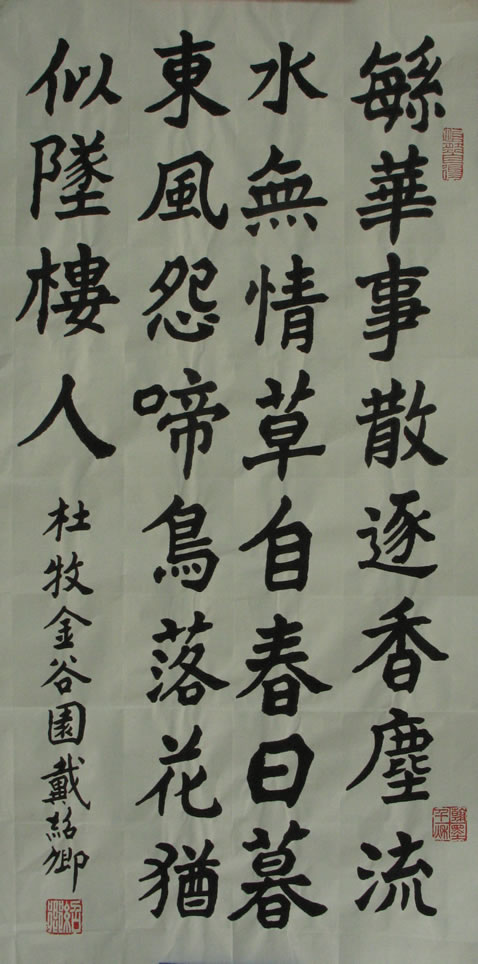 緐華事散逐香塵流
水無情草自春日暮
東風怨啼鳥落花猶
似墜樓人
杜牧金谷園戴紹卿